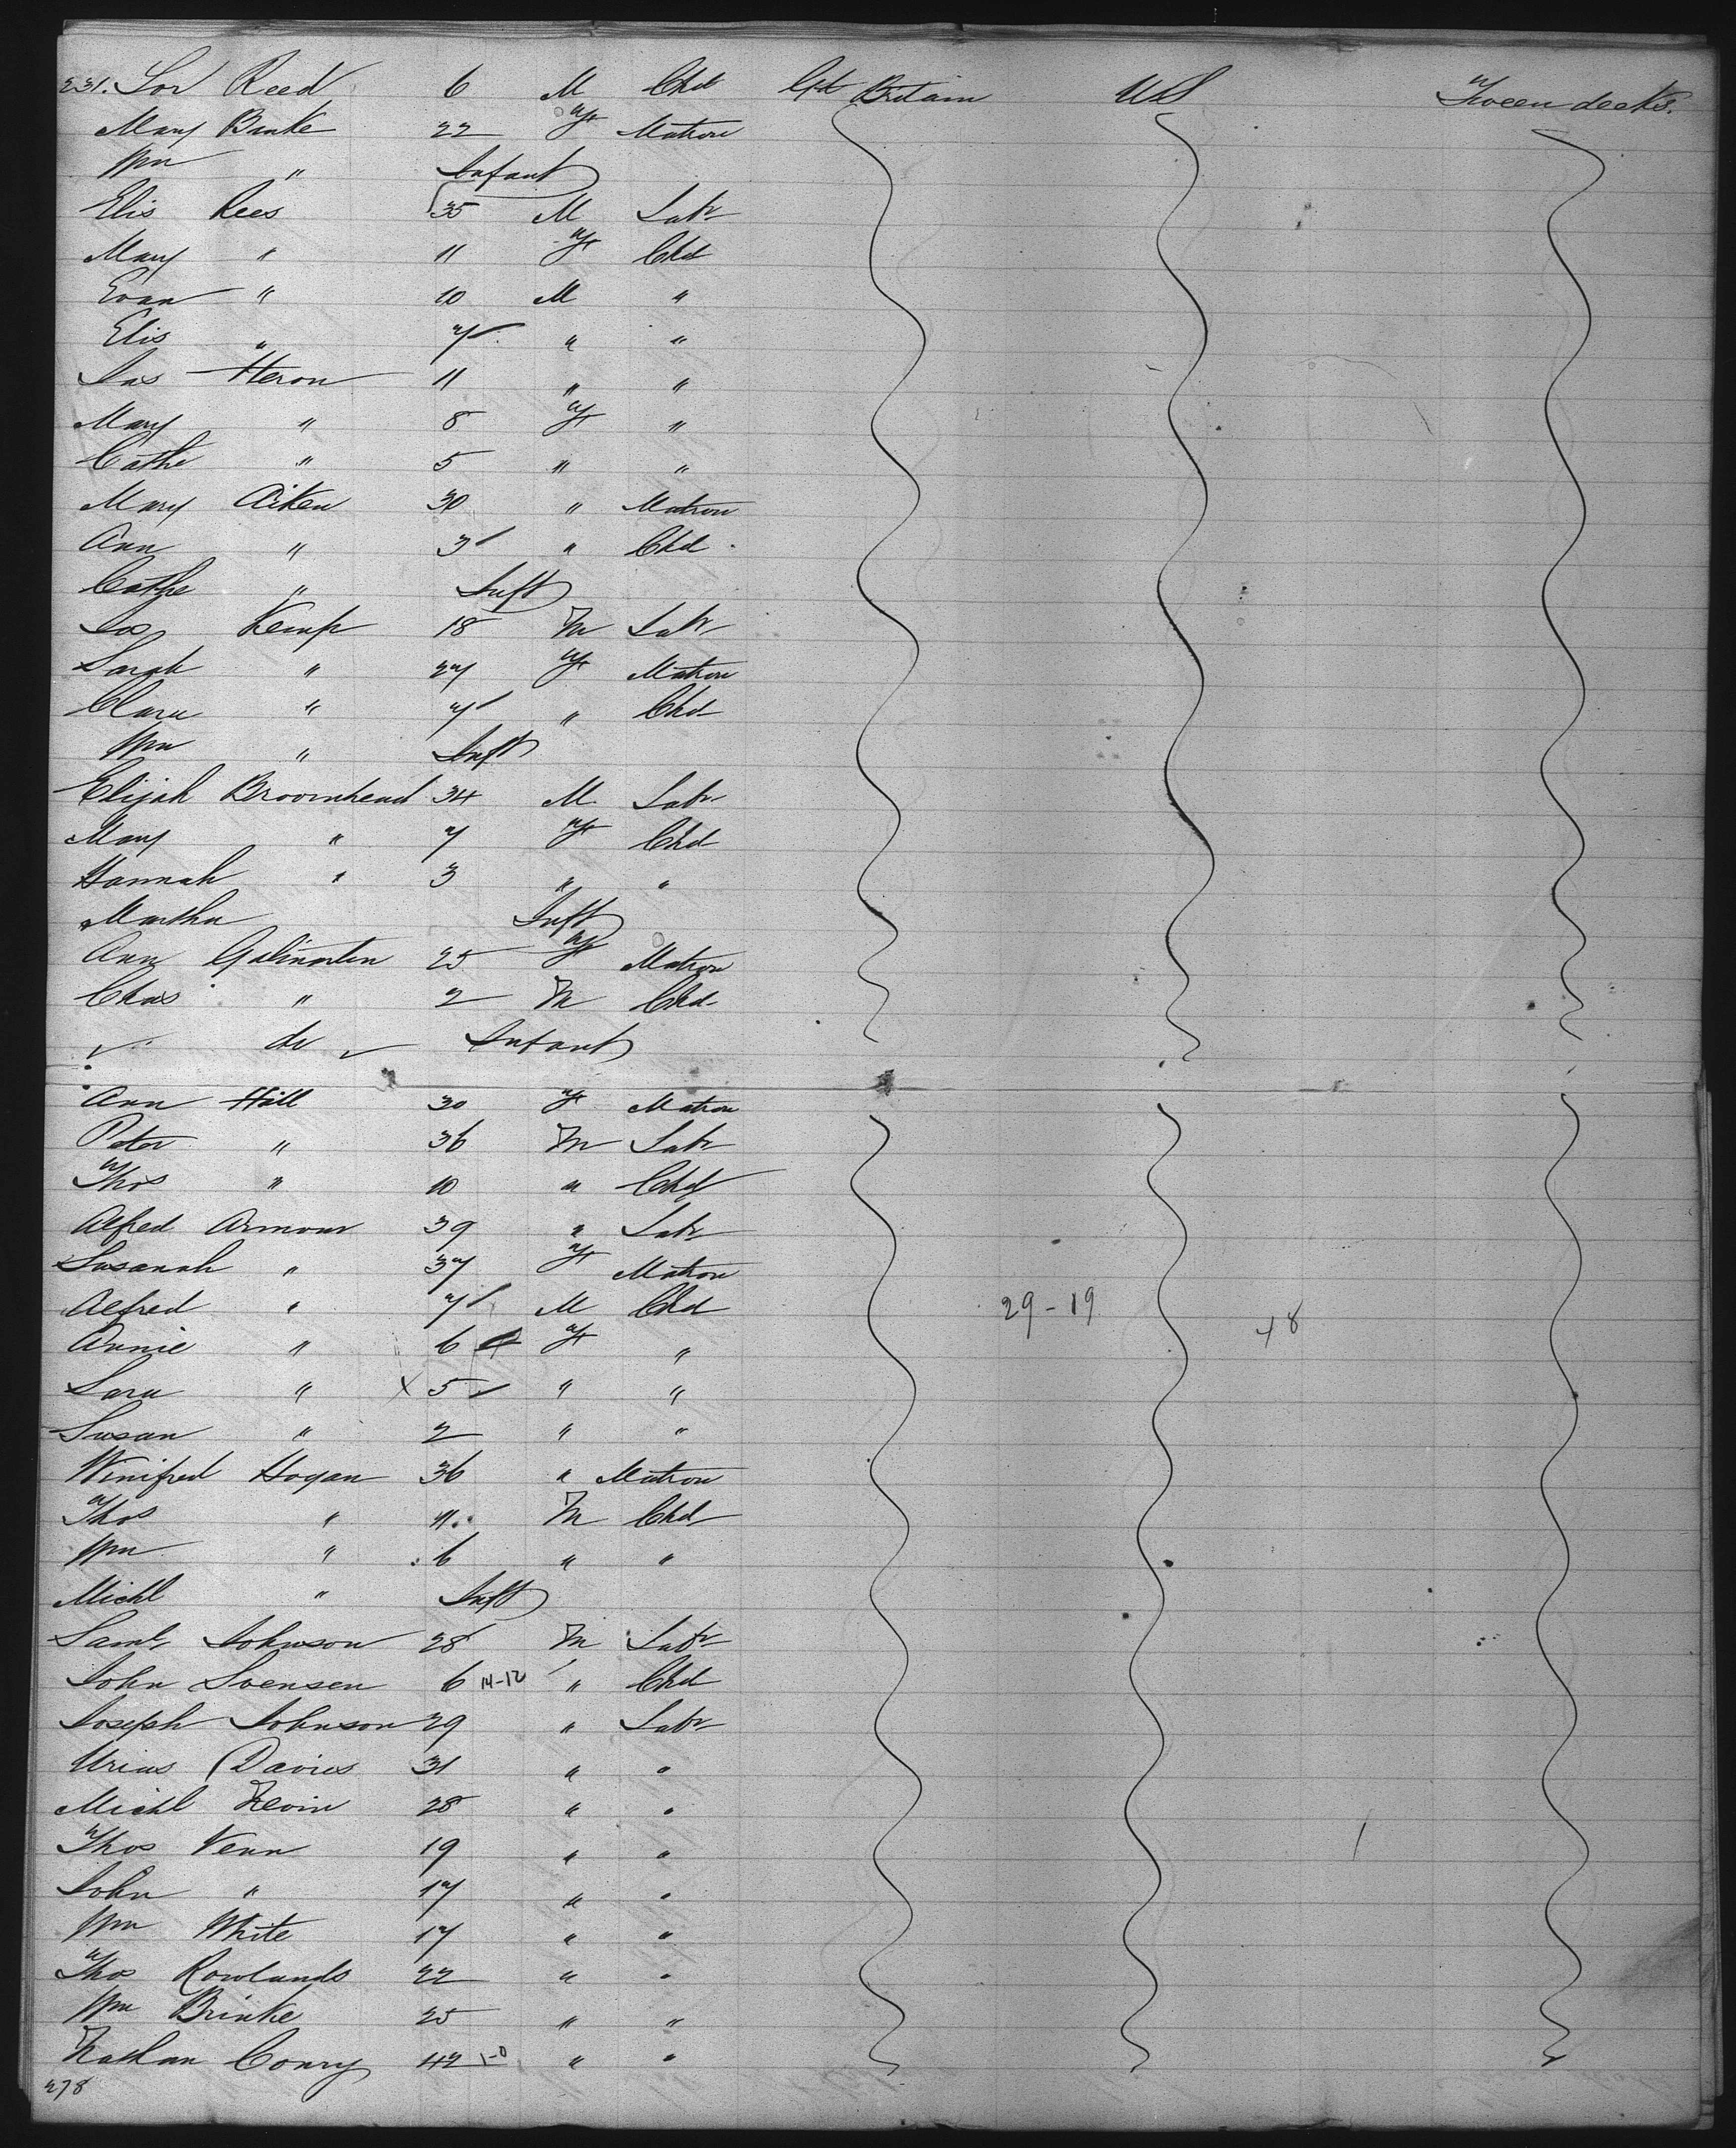 231. Jos Reed 6 M Chd Gt Britain US Tween decks.
Mary Banke 22 F Matron
Wm " Infant
Elis Rees 35 M Labr
Mary " 11 F Chd
Evan " 10 M "
Elis " 7 " "
Jas Heron 11 " "
Mary " 8 F "
Cathe " 5 " "
Mary Aiken 30 " Matron
Ann " 3 " Chd
Cathe " Inft
Jos Kemp 18 M Labr
Sarah " 27 F Matron
Clara " 7 " Chd
Wm " Inft
Elijah Broomhead 34 M Labr
Mary " 7 F Chd
Hannah " 3 " "
Martha Inft
Ann 25 F Matron
Chas " 2 M Chd
do Infant
Ann Hill 30 F Matron
Peter " 36 M Labr
Thos " 10 " Chd
Alfred Armour 39 " Labr
Susanah " 37 F Matron
Alfred " 7 M Chd 29-19
Annie " 6 F " 48
Sara " x 5 " "
Susan " 2 " "
Winifred Hogan 36 " Matron
Thos " 11 M Chd
Wm " 6 " "
Michl " Inft
Saml Johnson 28 M Labr
John Svensen 6 14-12 " Chd
Joseph Johnson 29 " Labr
Urias Davies 31 " "
Michl Nevin 28 " "
Thos Venn 19 " "
John " 17 " "
Wm White 17 " "
Thos Rowlands 22 " "
Wm Brinke 25 " "
Nathan Conry 42 1-0 " "
278